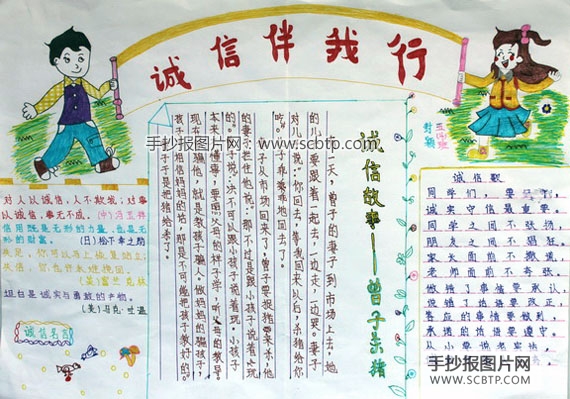 诚信伴我行
手抄报图片网 www.scbtp.com
对人以诚信，人不欺我；对事
以诚信，事无不成。(中)冯玉祥
信用既是无形的力量，也是无
形的财富。
(日)松下幸之助
失足，你可以马上恢复站立；
失信，你也许永难挽回。
(美)富兰克林
坦白是诚实与勇敢的产物。
(美)马克·吐温
诚信名言
诚信故事——曾子杀猪
有一天，曾子的妻子到市场上去，她
的儿子要跟着一起去，一边走，一边哭。妻子
对儿子说："你回去，等我回来以后，杀猪给你
吃。"儿子乖乖地回去了。
妻子从市场回来了，曾子要捉猪来杀，他
的妻子拦住他说："那不过是跟小孩子说着玩
的。"曾子说："决不可以跟小孩子说着玩。小孩子
本来不懂事，要照父母的样子学，听父母的教导。
现在你骗他，就是教孩子骗人。做妈妈的骗孩子，
孩子不相信妈妈的话，那是不可能把孩子教好的。"
于是把猪杀了。
诚信歌
同学们，要
诚实守信最重要。
同学之间不张扬，
朋友之间不
家长面前不撒谎，
老师面前不夸张。
做错了事情要承认，
说错了话语要改正，
答应的事情要做到，
承诺的话语要遵守
从小要说老实话，
手抄报图片网
WWW.SCBTP.COM